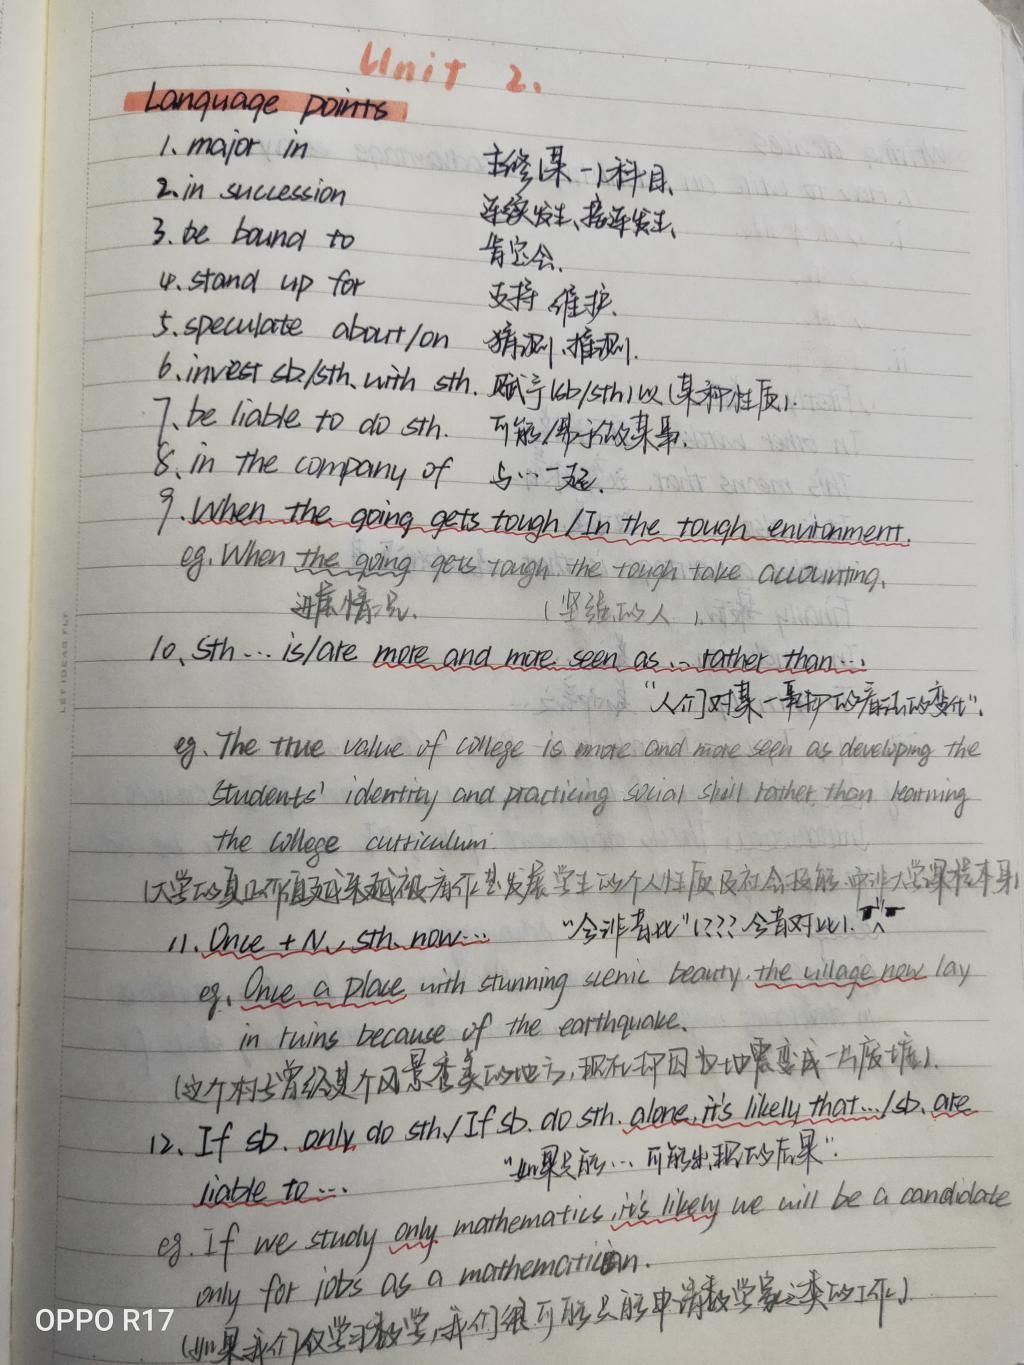 Unit 2.
Language points
1. major in 主修(某一)科目、
2. in succession 连续发生、接连发生、
3. be bound to 肯定会.
4. stand up for 支持 维护.
5. speculate about/on 猜测、推测.
6. invest sb/sth. with sth. 赋予(sb/sth)以(某种性质).
7. be liable to do sth. 可能/易于做某事.
8. in the company of 与…一起.
9. When the going gets tough/In the tough environment.
eg. When the going gets tough the tough take accounting.
进展情况. (坚强的人).
10. Sth … is/are more and more seen as … rather than…
"人们对某一事物的看法的变化".
eg. The true value of college is more and more seen as developing the
students' identity and practicing social skill rather than learning
the college curriculum.
(大学的真正价值越来越被看作是发展学生的个人性质及社会技能,而非大学课程本身)
11. Once + N, sth. now… "今非昔比"(??? 今昔对比).
eg. Once a place with stunning scenic beauty, the village now lay
in ruins because of the earthquake.
(这个村与曾经是个风景秀美的地方,现在却因为地震变成一片废墟).
12. If sb. only do sth./If sb. do sth. alone, it's likely that…/sb. are
liable to… "如果只能… 可能出现的后果".
eg. If we study only mathematics, it's likely we will be a candidate
only for jobs as a mathematician.
(如果我们仅学习数学,我们很可能只能申请数学家之类的工作.)
OPPO R17